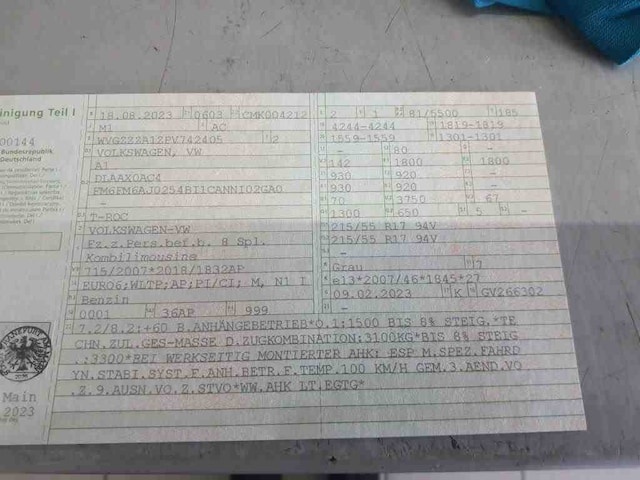 inigung Teil I
00144
Bundesrepublik
Deutschland
18.08.2023 0603 CMK004212
M1 AC
WVGZZZA1ZPV742405 2
VOLKSWAGEN, VW
A1
DLAAX0AC4
-
T-ROC
VOLKSWAGEN-VW
Fz.z.Pers.bef.b. 8 Spl.
Kombilimousine
715/2007*2018/1832AP
EURO6;WLTP;AP;PI/CI; M, N1 I
Benzin
0001 36AP 999
2 1 81/5500 185
4244-4244 1819-1819
1559-1559 1301-1301
- 80 -
142 1800 1800
930 920 -
930 920 -
70 3750 67
1300 650 5 -
215/55 R17 94V
215/55 R17 94V
-
Grau 7
e13*2007/46*1845*27
09.02.2023 K GV266302
7.2/8.2:+60 B.ANHÄNGEBETRIEB*O.1:1500 BIS 8% STEIG.*TE
CHN.ZUL.GES-MASSE D.ZUGKOMBINATION:3100KG*BIS 8% STEIG
.:3300*BEI WERKSEITIG MONTIERTER AHK: ESP M.SPEZ.FAHRD
YN.STABI.SYST.F.ANH.BETR.F.TEMP.100 KM/H GEM.3.AEND.VO
.Z.9.AUSN.VO.Z.STVO*WW.AHK LT.EGTG*
Main
2023